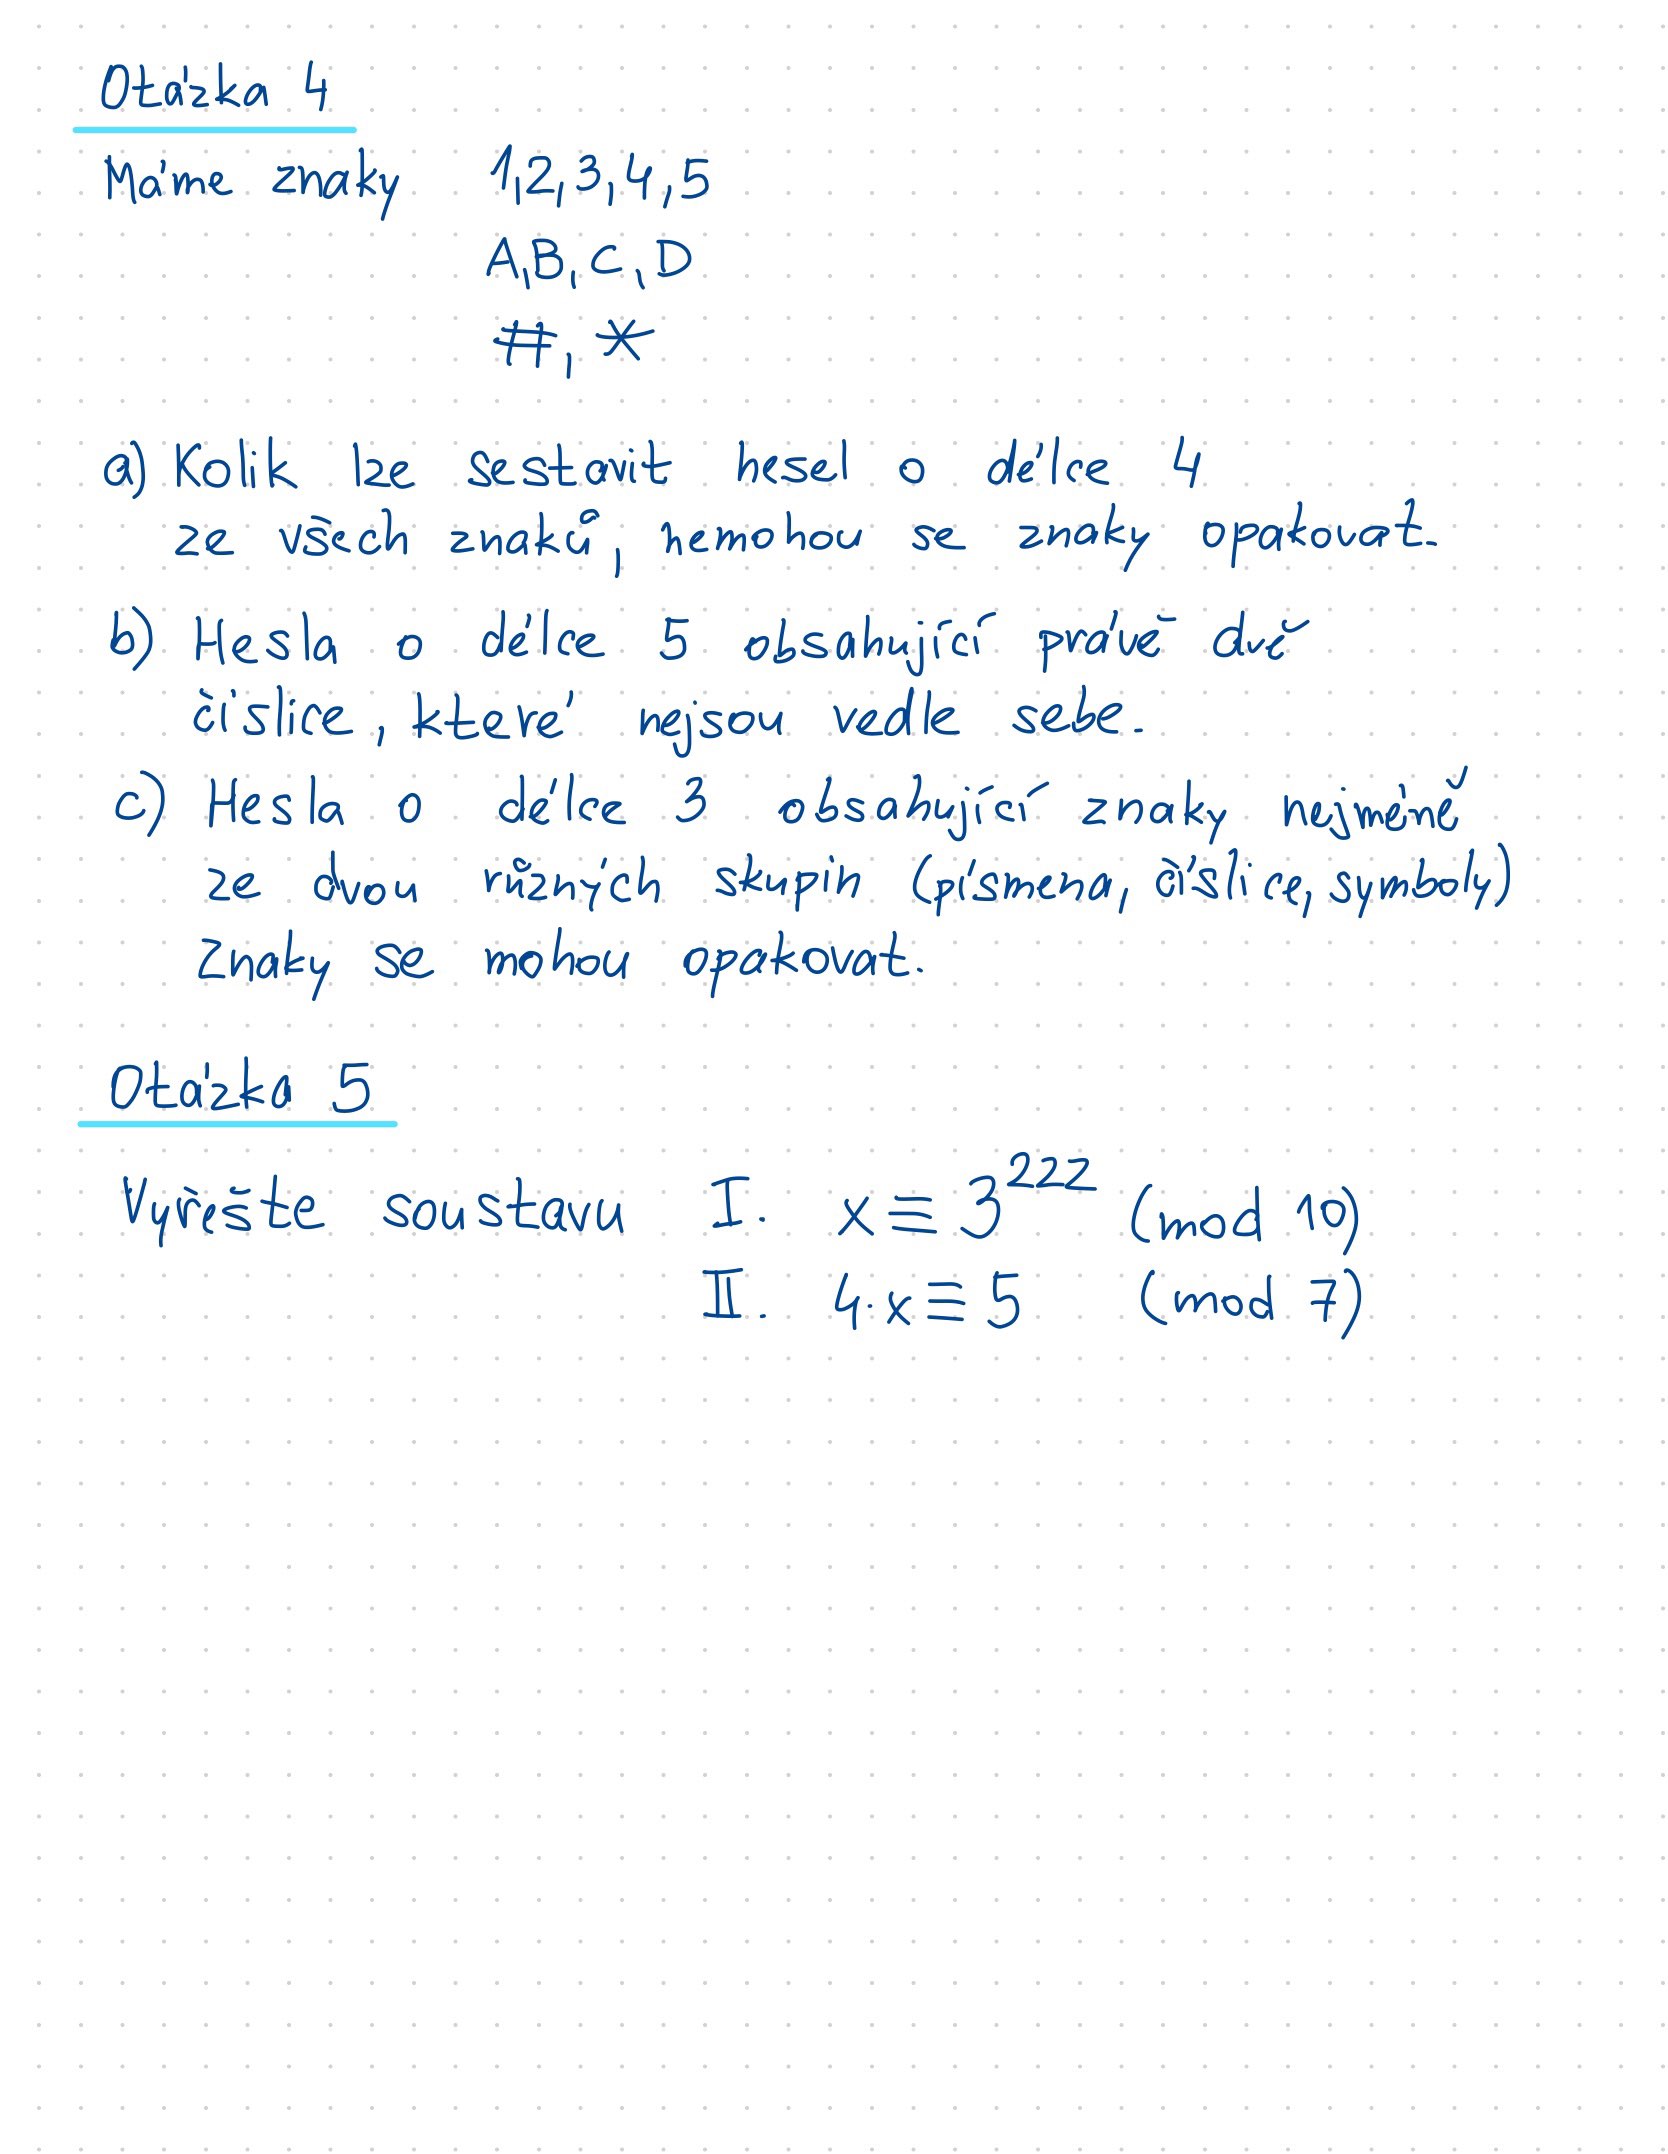 Otázka 4
Máme znaky 1,2,3,4,5
A,B,C,D
#,*
a) Kolik lze sestavit hesel o délce 4
ze všech znaků, nemohou se znaky opakovat.
b) Hesla o délce 5 obsahující právě dvě
číslice, které nejsou vedle sebe.
c) Hesla o délce 3 obsahující znaky nejméně
ze dvou různých skupin (písmena, číslice, symboly)
Znaky se mohou opakovat.
Otázka 5
Vyřešte soustavu I. x ≡ 3²²² (mod 10)
II. 4·x ≡ 5 (mod 7)